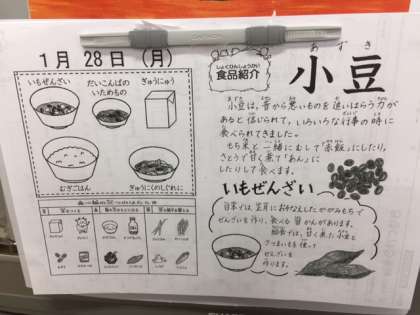 1月 28日 (月)
いもぜんざい
だいこんばの
いためもの
ぎゅうにゅう
むぎごはん
ぎゅうにくのしぐれに
しょくひんしょうかい
食品紹介
あずき
小豆
小豆は、昔から悪いものを追いはらう力が
あると信じられて、いろいろな行事の時に
食べられてきました。
もち米と一緒にむして「赤飯」にしたり、
さとうで甘く煮て「あん」に
したりして食べます。
いもぜんざい
日本では、正月におそなえしたかがみもちで
ぜんざいを作り、食べる習かんがあります。
給食では、甘く煮た小豆と
さつまいもを使って
ぜんざいを
作ります。